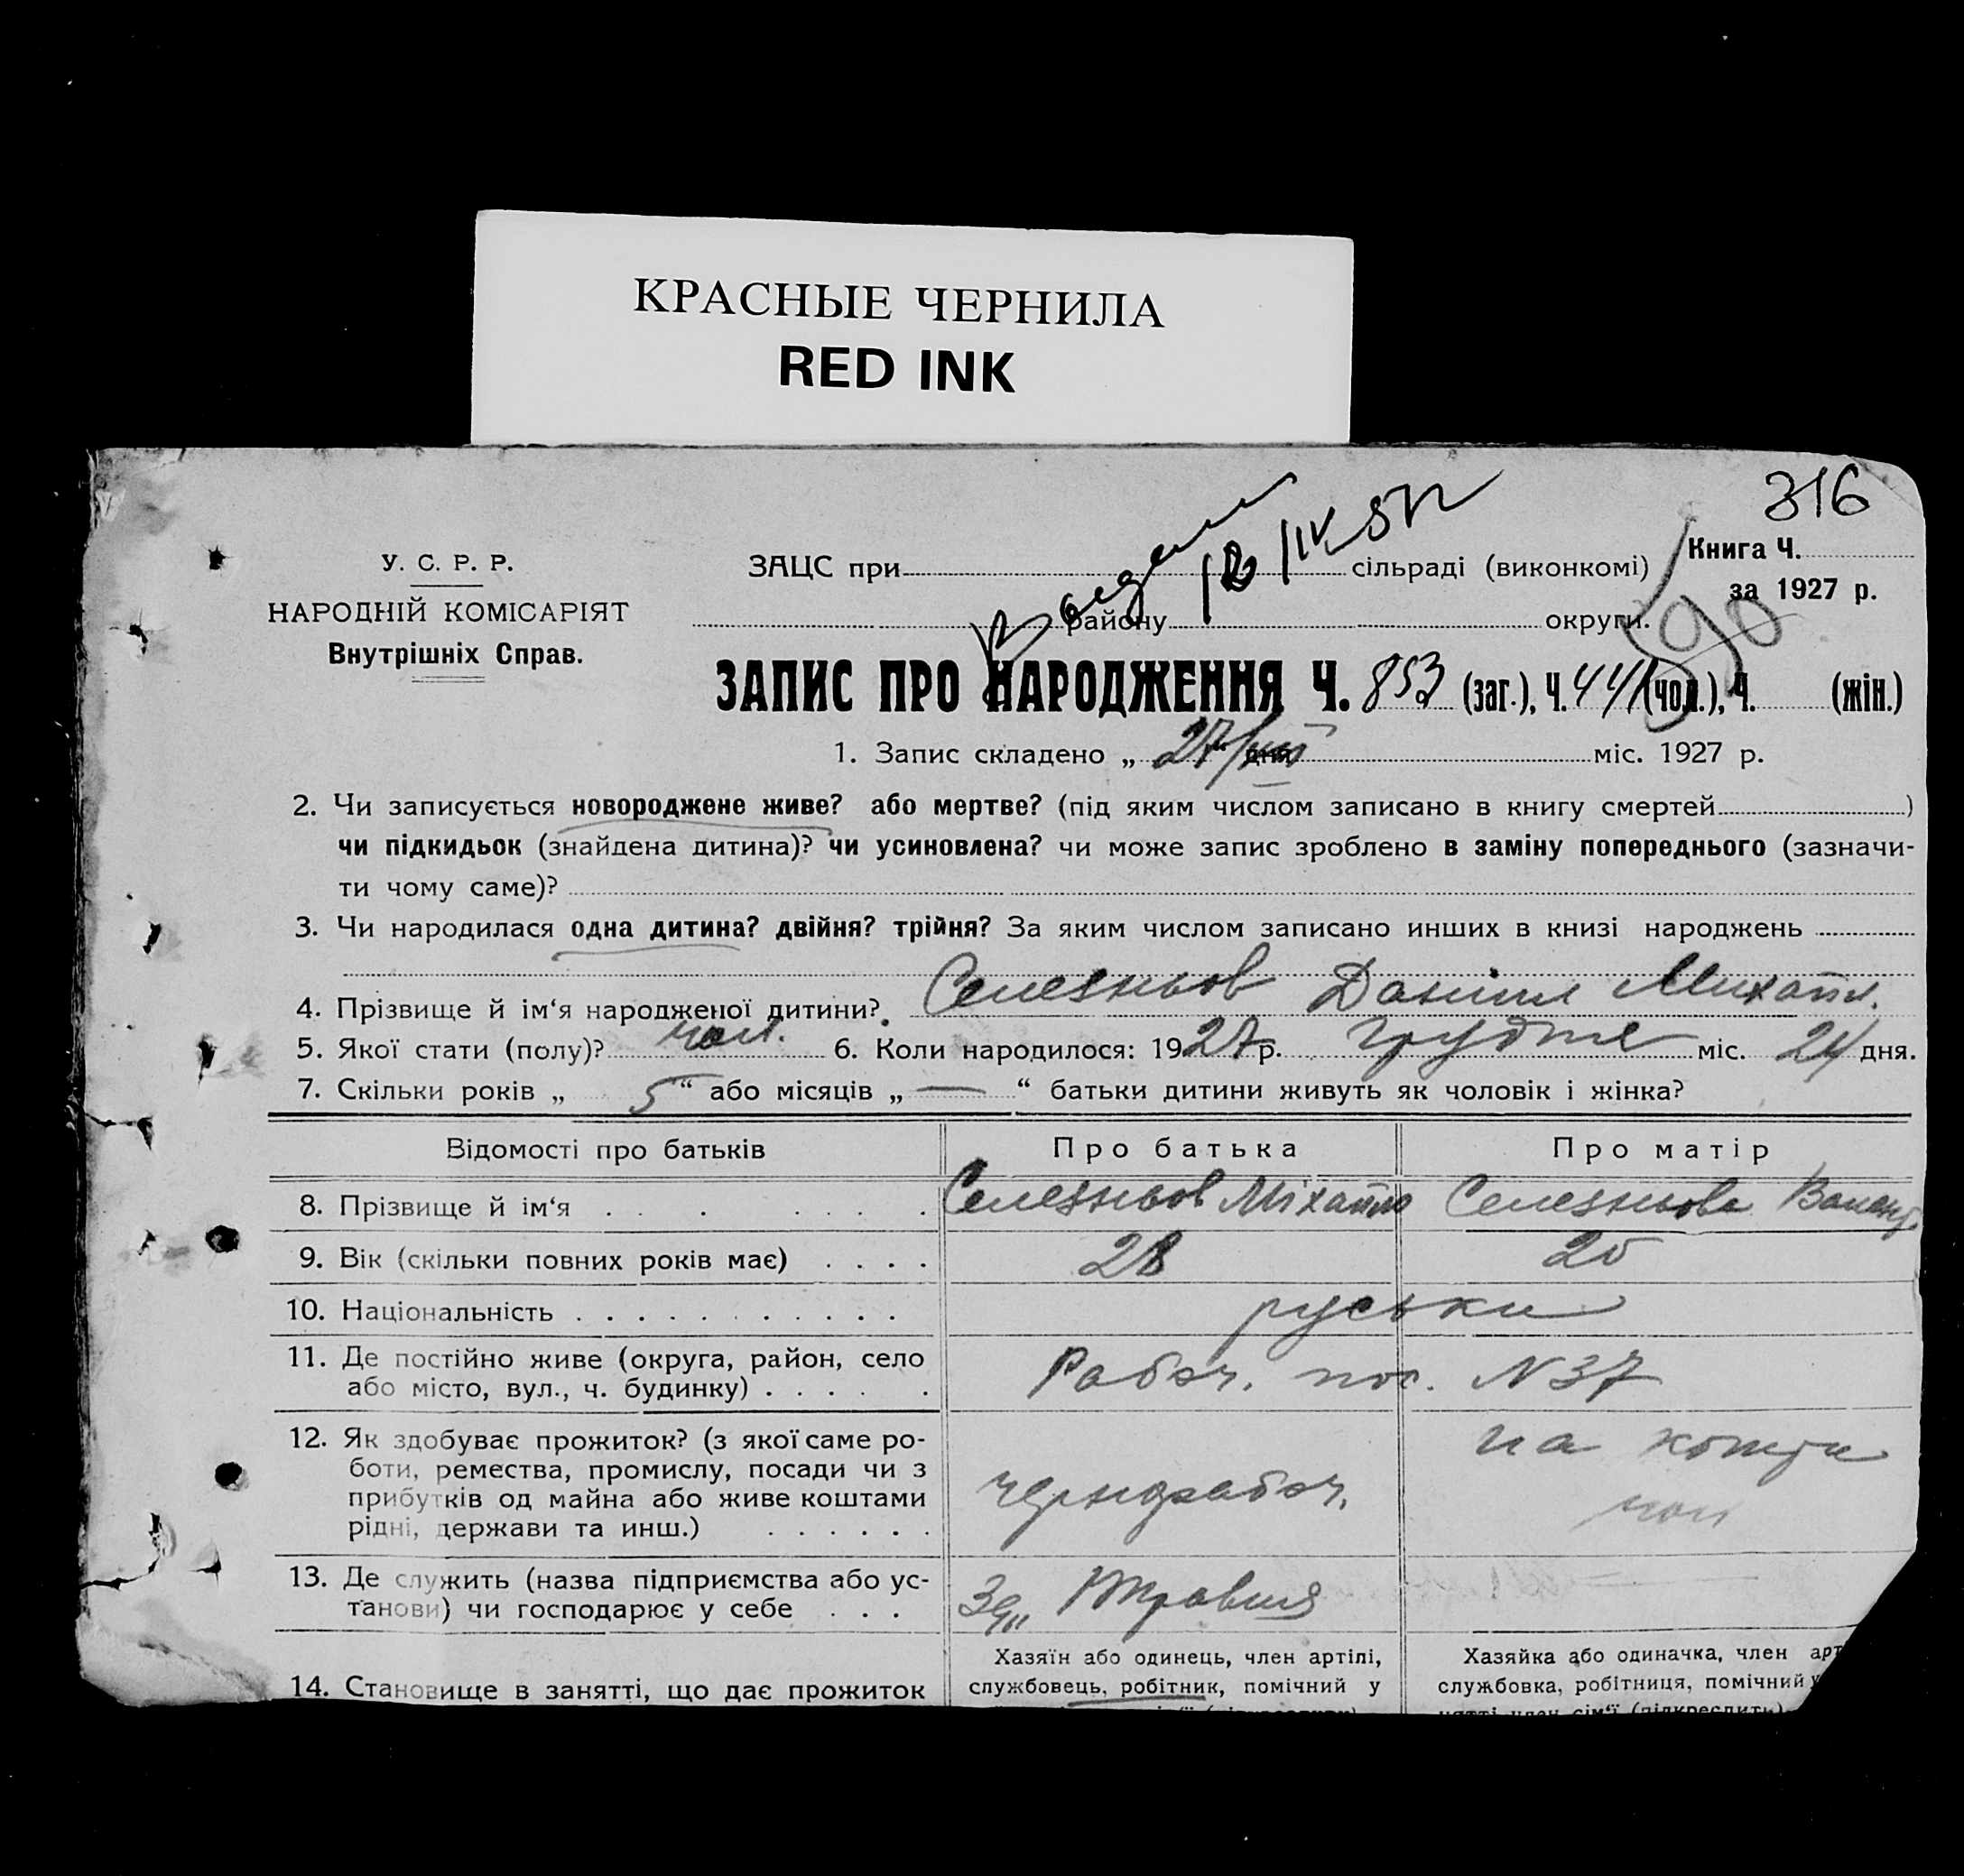 КРАСНЫЕ ЧЕРНИЛА
RED INK
316
У. С. Р. Р.
НАРОДНІЙ КОМІСАРІЯТ
Внутрішніх Справ.
ЗАЦС при сільраді (виконкомі)
району округи.
Книга Ч.
за 1927 р.
590
ЗАПИС ПРО НАРОДЖЕННЯ Ч. 853 (заг.), Ч. 441 (чол.), Ч. (жін.)
1. Запис складено „ 27/XII “ дня міс. 1927 р.
2. Чи записується новороджене живе? або мертве? (під яким числом записано в книгу смертей )
чи підкидьок (знайдена дитина)? чи усиновлена? чи може запис зроблено в заміну попереднього (зазначи-
ти чому саме)?
3. Чи народилася одна дитина? двійня? трійня? За яким числом записано инших в книзі народжень
4. Прізвище й ім‘я народженої дитини? Селезньов Даніїл Михайл.
5. Якої стати (полу)? чол. 6. Коли народилося: 1927 р. грудня міс. 24 дня.
7. Скільки років „ 5 “ або місяців „ — “ батьки дитини живуть як чоловік і жінка?
Відомості про батьків Про батька Про матір
8. Прізвище й ім‘я Селезньов Міхайло Селезньова
9. Вік (скільки повних років має) 28 25
10. Національність руськи
11. Де постійно живе (округа, район, село
або місто, вул., ч. будинку) Рабоч. пос. N 37
12. Як здобуває прожиток? (з якої саме ро-
боти, ремества, промислу, посади чи з
прибутків од майна або живе коштами
рідні, держави та инш.) чернорабоч. на кошти чол
13. Де служить (назва підприємства або ус-
танови) чи господарює у себе
14. Становище в занятті, що дає прожиток
Хазяїн або одинець, член артілі,
службовець, робітник, помічний у
Хазяйка або одиначка, член арт
службовка, робітниця, помічний у
нятті член сім‘ї (підкреслить)